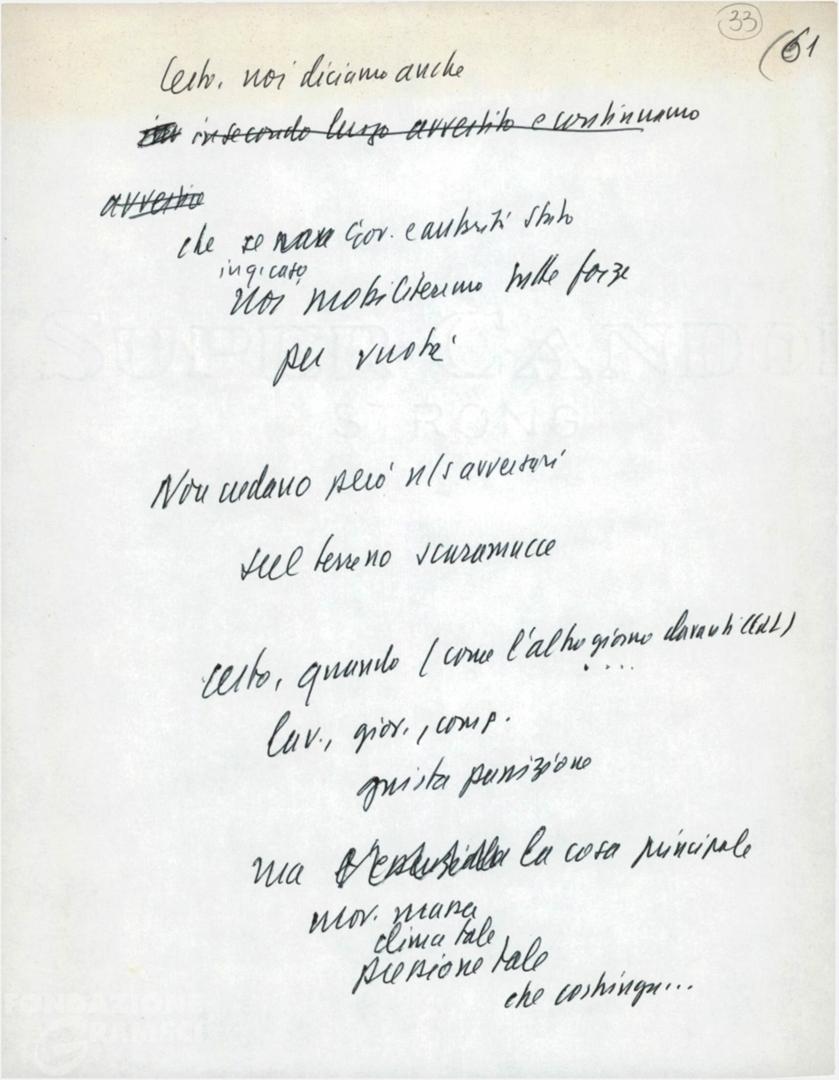 33
61
Certo, noi diciamo anche
in secondo luogo avvertito e continuiamo
avvertire
che se non Gov. e autorità Stato
in q. caso
noi mobiliteremo tutte forze
per
Non cedano però n/s avversari
sul terreno scaramucce
Certo, quando (come l'altro giorno davanti CGIL)
....
lav., giov., comp.
giusta punizione
ma la cosa principale
mov. massa
clima tale
pressione tale
che costringa...
SUPER CANDI
STRONG
FONDAZIONE
GRAMSCI